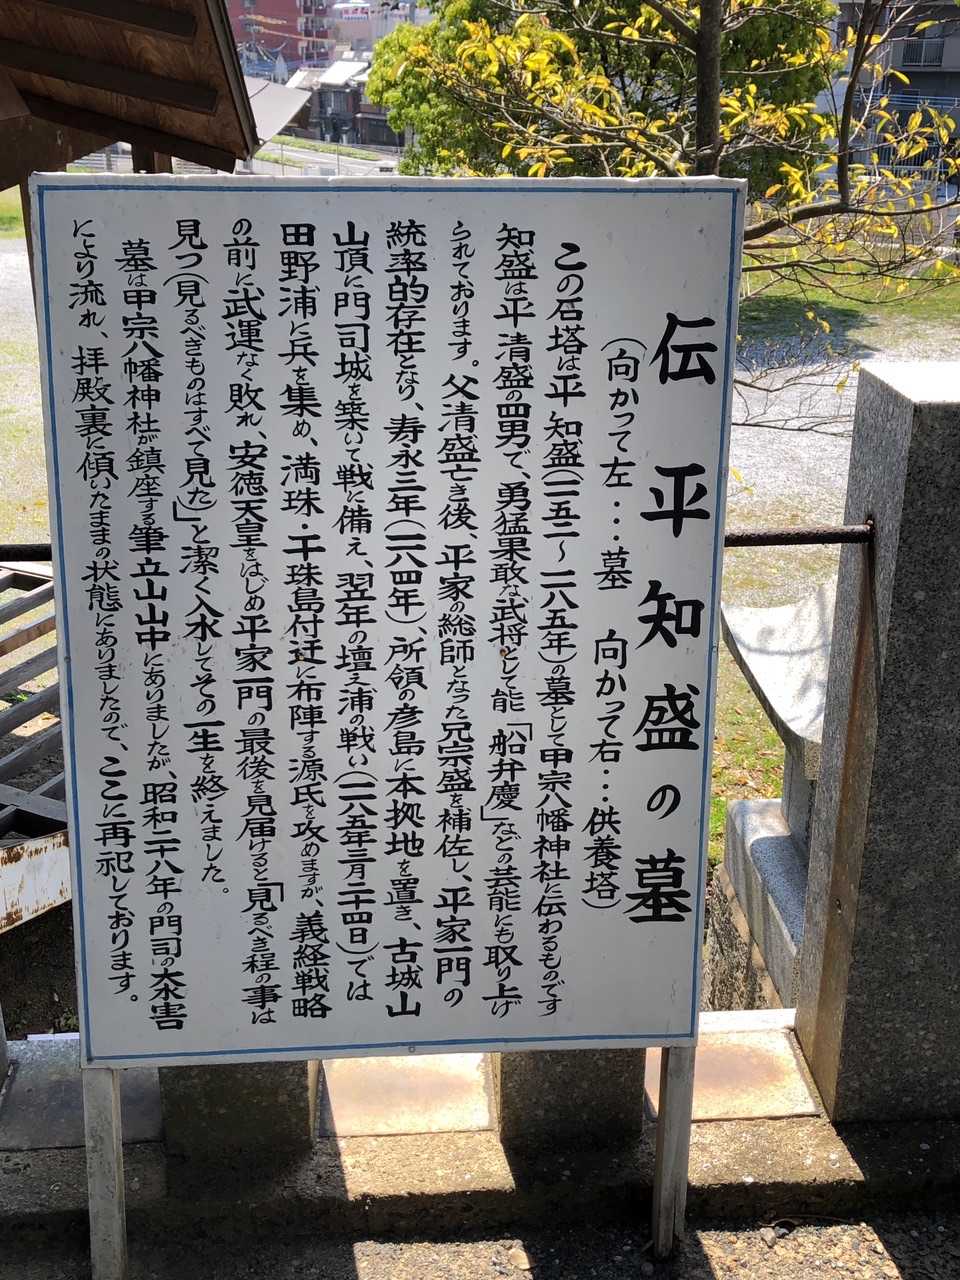 伝 平 知 盛 の 墓
（向かって左・・・墓　向かって右・・・供養塔）
この石塔は平 知盛（一一五二〜一一八五年）の墓として甲宗八幡神社に伝わるものです
知盛は平 清盛の四男で、勇猛果敢な武将として能「船弁慶」などの芸能にも取り上げ
られております。父清盛亡き後、平家の総師となった兄宗盛を補佐し、平家一門の
統率的存在となり、寿永三年（一一八四年）、所領の彦島に本拠地を置き、古城山
山頂に門司城を築いて戦に備え、翌年の壇之浦の戦い（一一八五年三月二十四日）では
田野浦に兵を集め、満珠・干珠島付近に布陣する源氏を攻めますが、義経戦略
の前に武運なく敗れ、安徳天皇をはじめ平家一門の最後を見届けると「見るべき程の事は
見つ（見るべきものはすべて見た）」と潔く入水してその一生を終えました。
墓は甲宗八幡神社が鎮座する筆立山山中にありましたが、昭和二十八年の門司の大水害
により流れ、拝殿裏に傾いたままの状態にありましたので、ここに再祀しております。